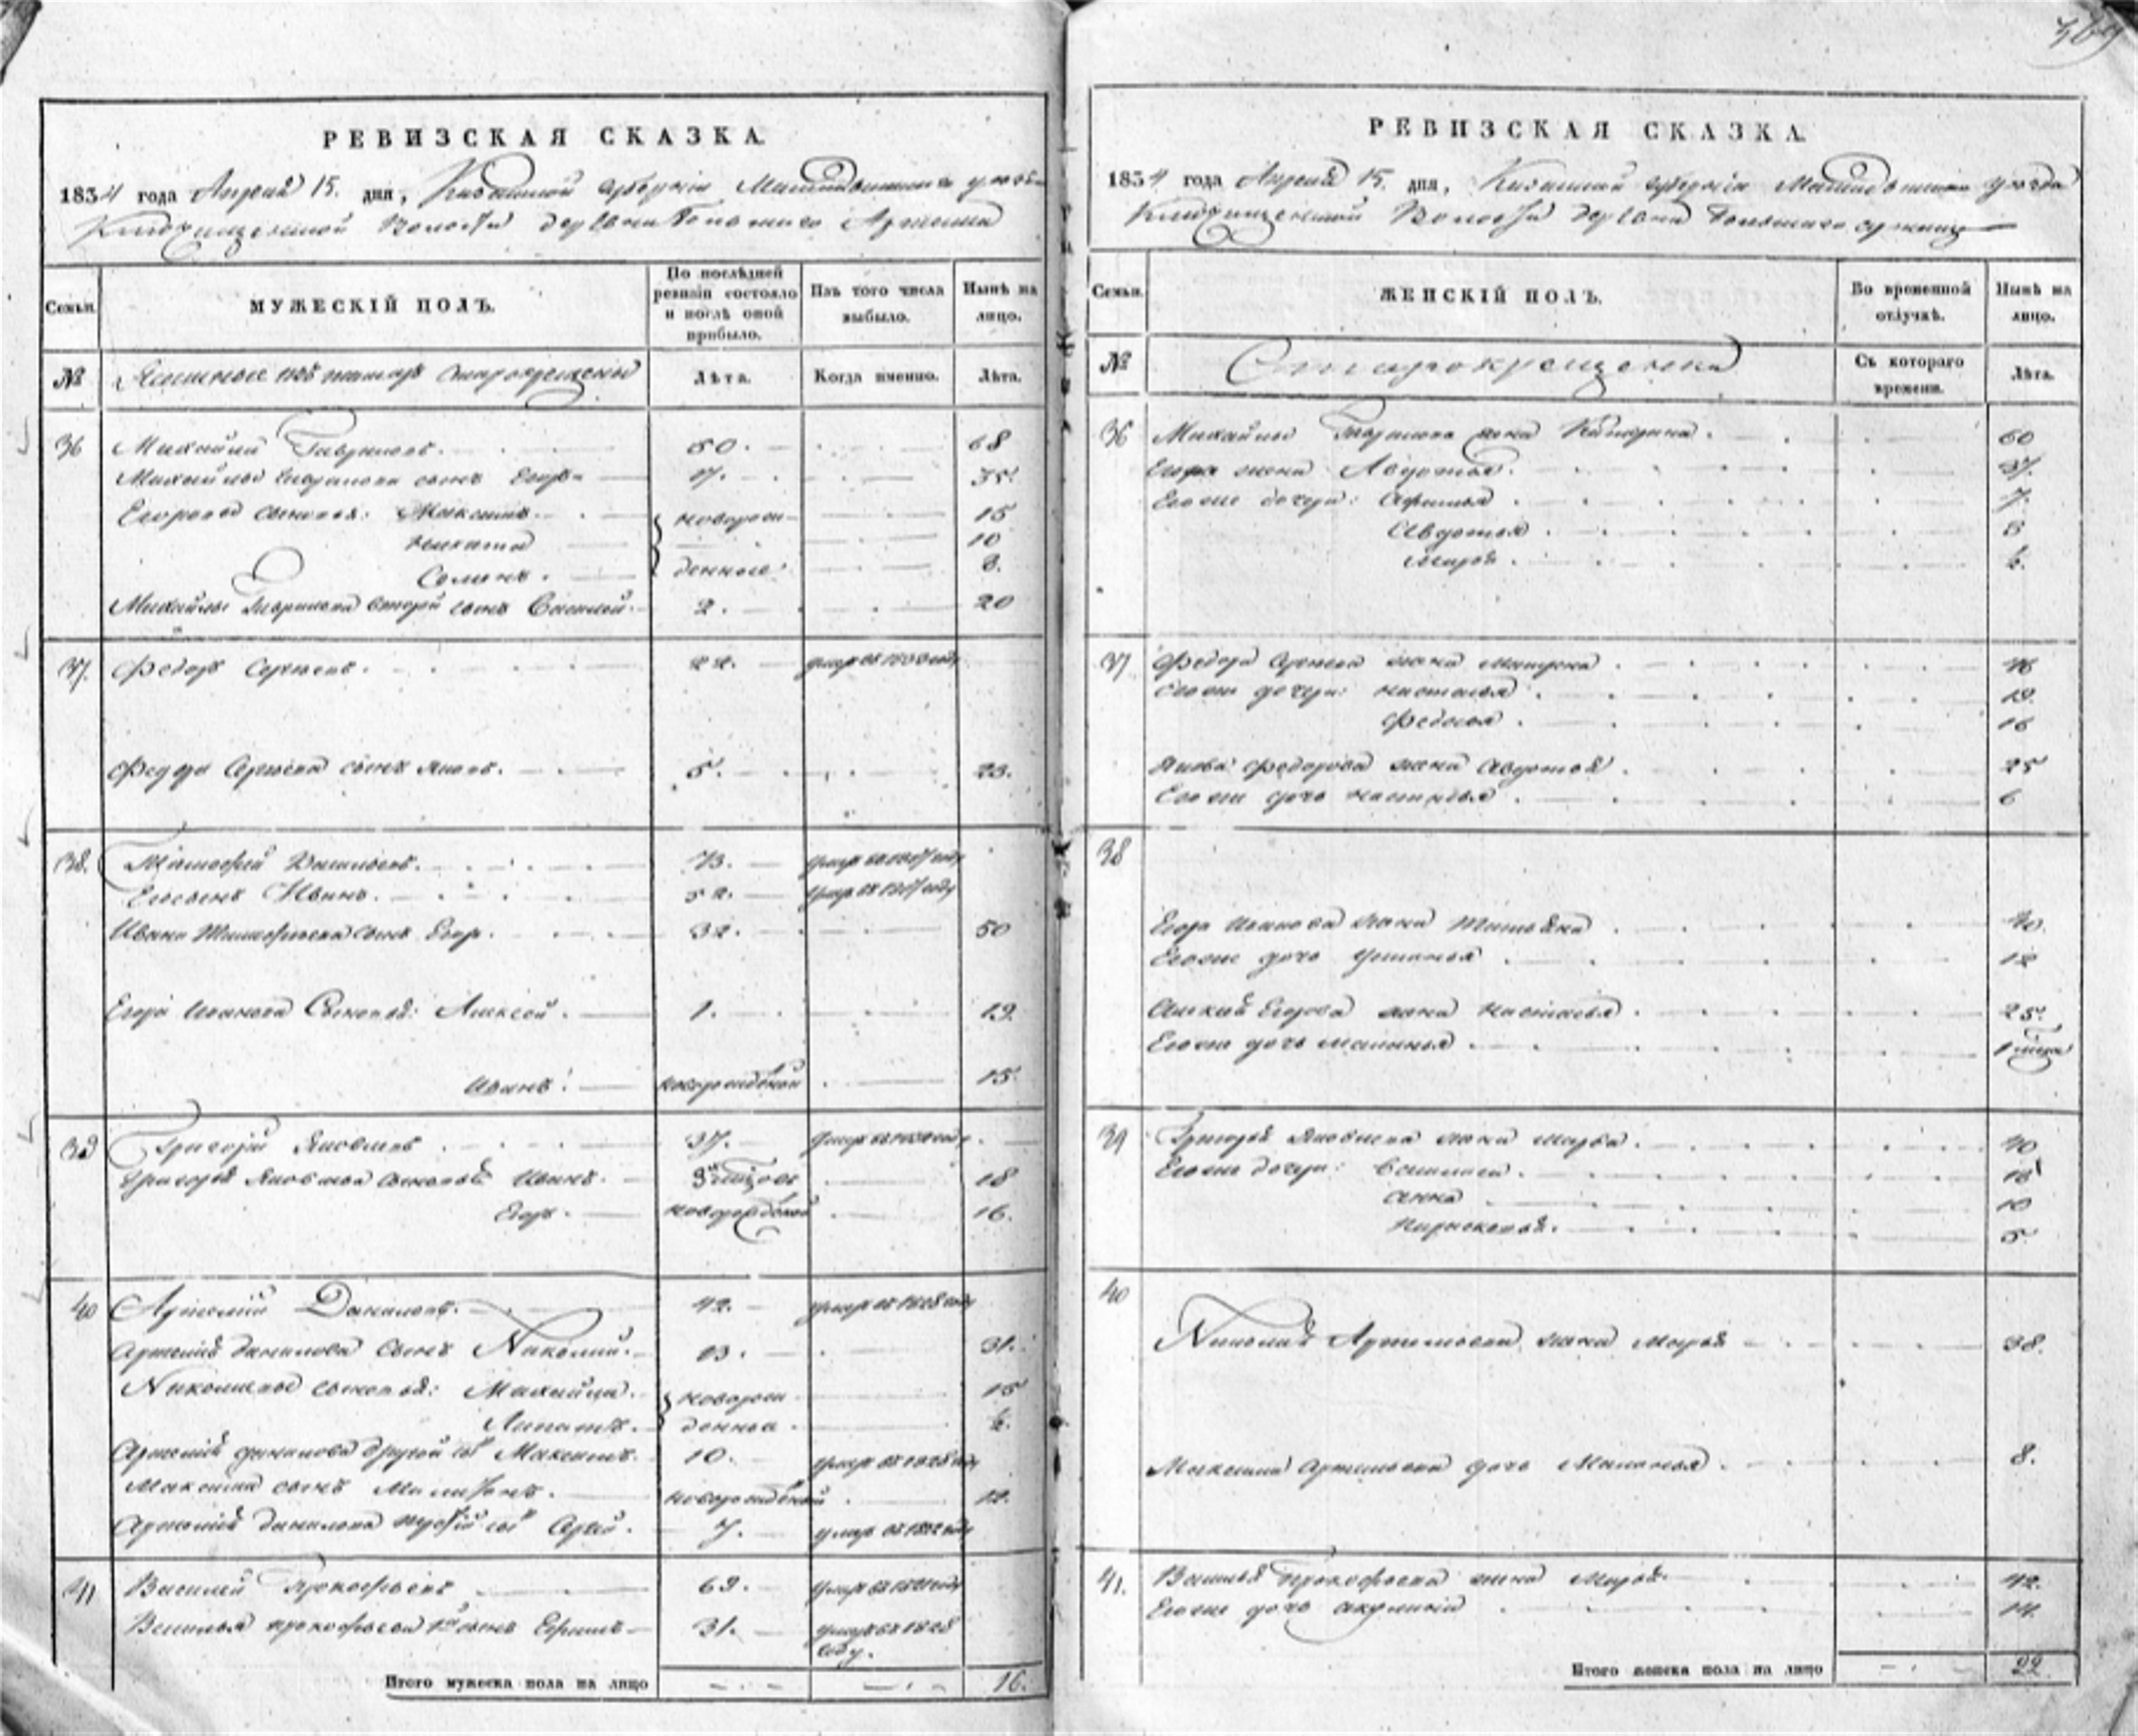 РЕВИЗСКАЯ СКАЗКА.
1834 года Апреля 15. дня, Казанской губернии Мамадышскаго уезда
волости деревни Большаго Арняша
Семьи. МУЖЕСКІЙ ПОЛЪ. По послѣдней ревизіи состояло и послѣ оной прибыло. Изъ того числа выбыло. Нынѣ на лицо.
№ Ясашные изъ татаръ старокрещены Лѣта. Когда именно. Лѣта.
36 Михайло Гавриловъ. 50. 68
Михайлы Гаврилова сынъ Егоръ 17. 35.
Егоровы сыновья: Максимъ. новорож- 15
Никита 10
Семенъ. денные 8.
Михайлы Гаврилова второй сынъ Василей. 2. 20
37. Федоръ Сергеевъ. 22. умеръ въ году
Федора Сергеева сынъ Яковъ. 5. 23.
38. Тимофей 73. умеръ въ году
Его сынъ Иванъ. 52. умеръ въ году
Ивана Тимофеева сынъ Егоръ. 32. 50
Егора Иванова сыновья: Алексей. 1. 19
Иванъ. новорожденной 15.
39 Григорій Яковлевъ 37. умеръ въ году
Григорья Яковлева сыновья Иванъ. 18
Егоръ. новорожденной 16.
40 Артемій Даниловъ. 42. умеръ въ 1828 году
Артемья Данилова сынъ Николай. 13. 31.
Николаевы сыновья: Михайла. новорож- 15
Липатъ. денныя
Артемья Данилова другой сы Максимъ. 10. умеръ въ 1828 году
Максима сынъ новорожденной 12.
Артемья Данилова третій сы Сергей. 7. умеръ въ году
41 Василей Прокофьевъ 69. умеръ въ году
Василья Прокофьева 1й сынъ 31. умеръ въ 1828
году.
Итого мужеска пола на лицо 16.
РЕВИЗСКАЯ СКАЗКА.
1834 года Апреля 15. дня, Казанской губерніи Мамадышскаго уезда
волости деревни Большаго
Семьи. ЖЕНСКІЙ ПОЛЪ. Во временной отлучкѣ. Нынѣ на лицо.
№ Старокрещенка Съ котораго времени. Лѣта.
36 Михайлы Гаврилова жена Катерина. 60
Егора жена Авдотья. 37.
Его же дочери: Афимья 7.
Авдотья
Марья.
37 Федора Сергеева жена Матрена
Его же дочери: Настасья
Федосья 16
Якова Федорова жена Авдотья 25
Его же дочь Настасья 6
38
Егора Иванова жена Татьяна 40.
Его же дочь Устинья 12
Алексея Егорова жена Настасья 25.
Его же дочь
39 Григорья Яковлева жена Марья. 40
Его же дочери: Василиса. 18
Анна 10
Парасковья. 5
40
Николая Артемьева жена Марья 38.
Максима Артемьева дочь Маланья 8.
41. Василья Прокофьева жена Марья 42.
Его же дочь Акулина 14.
Итого женска пола на лицо 22